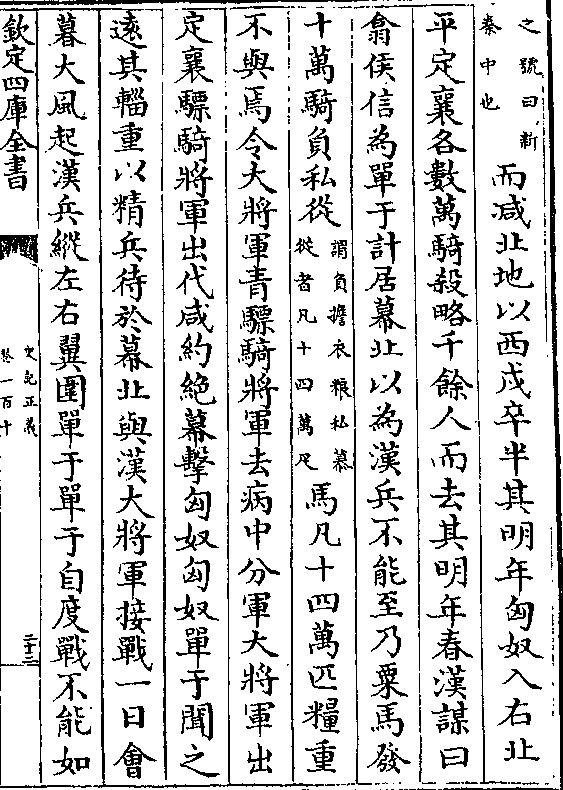 之號曰新秦中也而减北地以西戍卒半其明年匈奴入右北
平定襄各數萬騎殺略千餘人而去其明年春漢謀曰
翕侯信為單于計居幕北以為漢兵不能至乃粟馬發
十萬騎負私從謂負擔衣糧私慕從者凡十四萬疋馬凡十四萬匹糧重
不與焉令大將軍青驃騎將軍去病中分軍大將軍出
定襄驃騎將軍出代咸約絶幕擊匈奴匈奴單于聞之
逺其輜重以精兵待於幕北與漢大將軍接戰一日會
暮大風起漢兵縱左右翼圍單于單于自度戰不能如
欽定四庫全書
史記正義
卷一百十
二十三